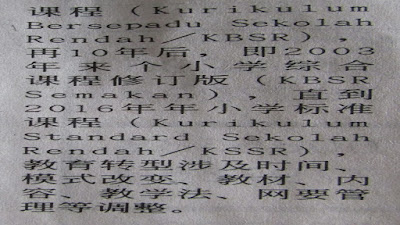 课程（Kurikulum
Bersepadu Sekolah
Rendah／KBSR），
再10年后，即2003
年来个小学综合
课程修订版（KBSR
Semakan），直到
2016年年小学标准
课程（Kurikulum
Standard Sekolah
Rendah／KSSR），
教育转型涉及时间、
模式改变、教材、内
容、教学法、网要管
理等调整。